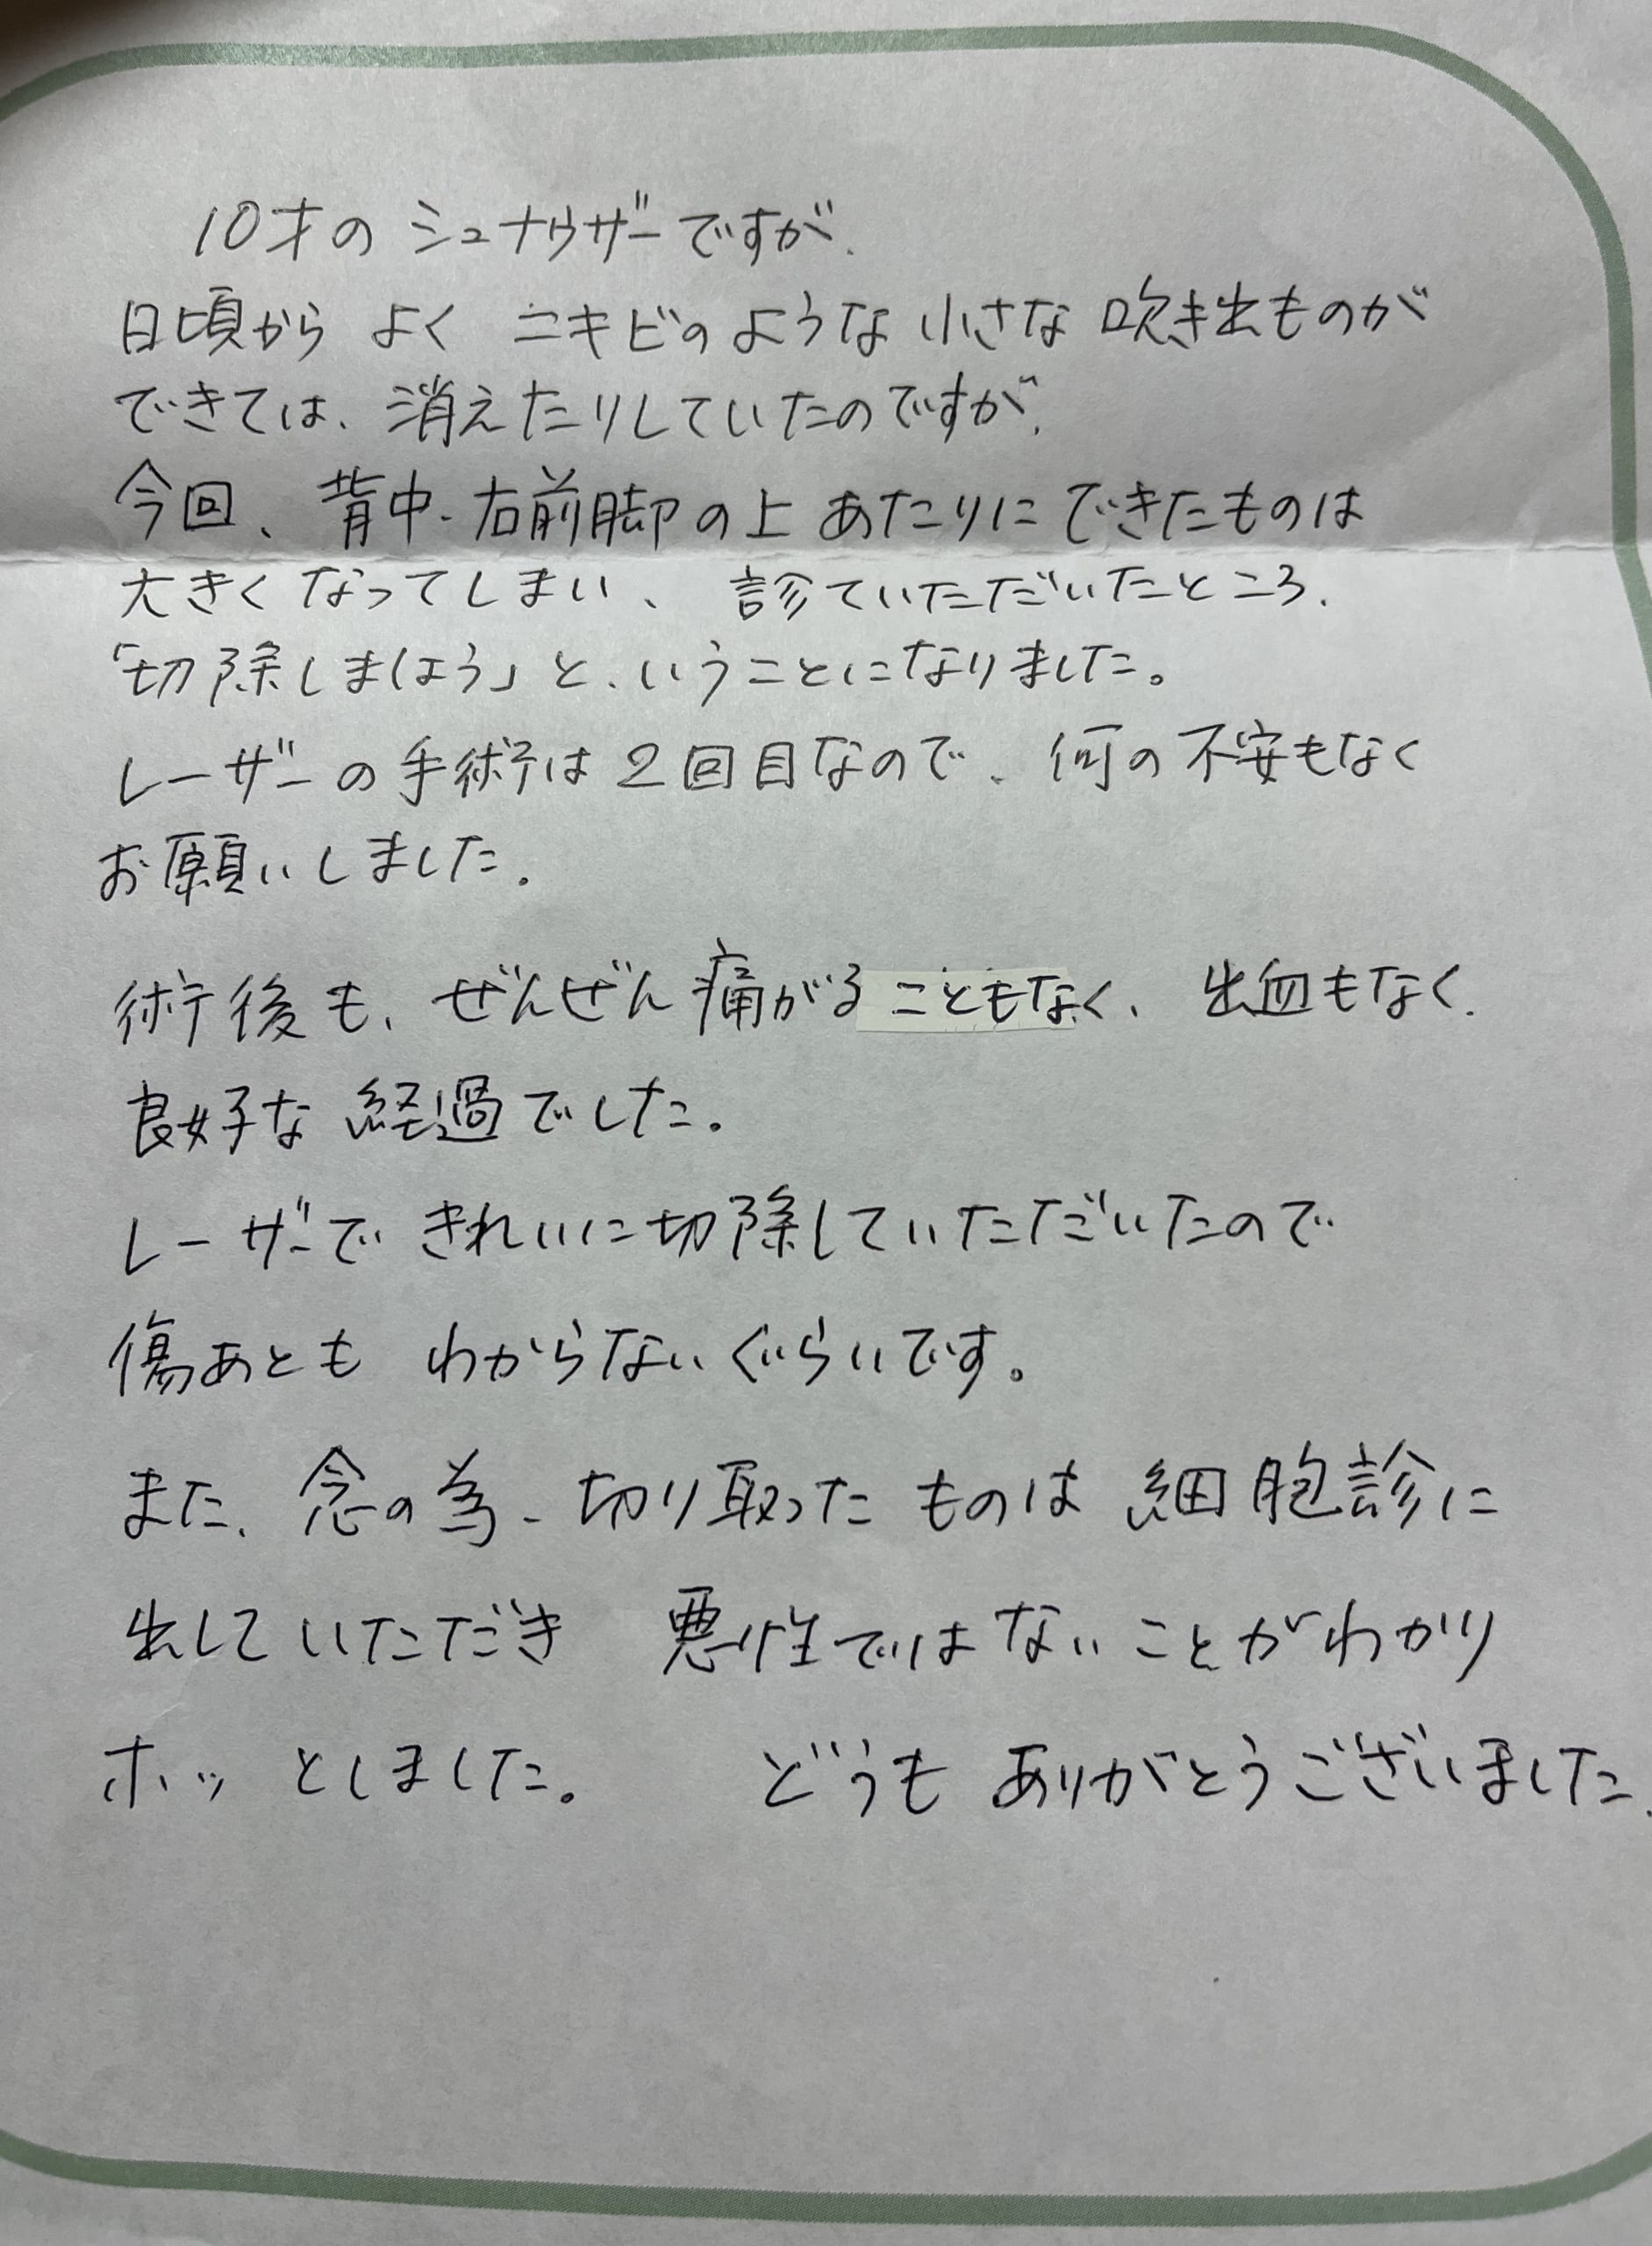 10才の シュナウザーですが、
日頃から よく ニキビのような 小さな 吹き出ものが
できては、消えたりしていたのですが、
今回、背中、右前脚の上 あたりに できたものは
大きくなってしまい、 診ていただいたところ、
「切除しましょう」と、いうことになりました。
レーザーの手術は2回目なので、何の不安もなく
お願いしました。
術後も、ぜんぜん痛がることもなく、出血もなく、
良好な 経過でした。
レーザーで きれいに切除していただいたので
傷あとも わからないぐらいです。
また、念の為、切り取った ものは 細胞診に
出していただき 悪性ではないことがわかり
ホッ としました。 どうも ありがとうございました。